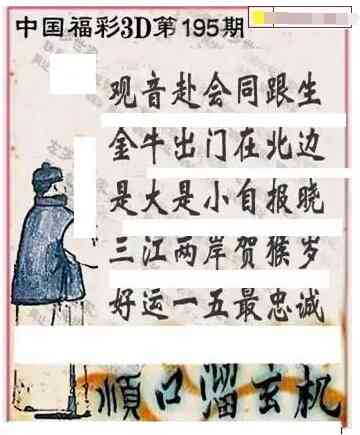 中国福彩3D第195期
观音赴会同跟生
金牛出门在北边
是大是小自报晓
三江两岸贺猴岁
好运一五最忠诚
顺口溜玄机